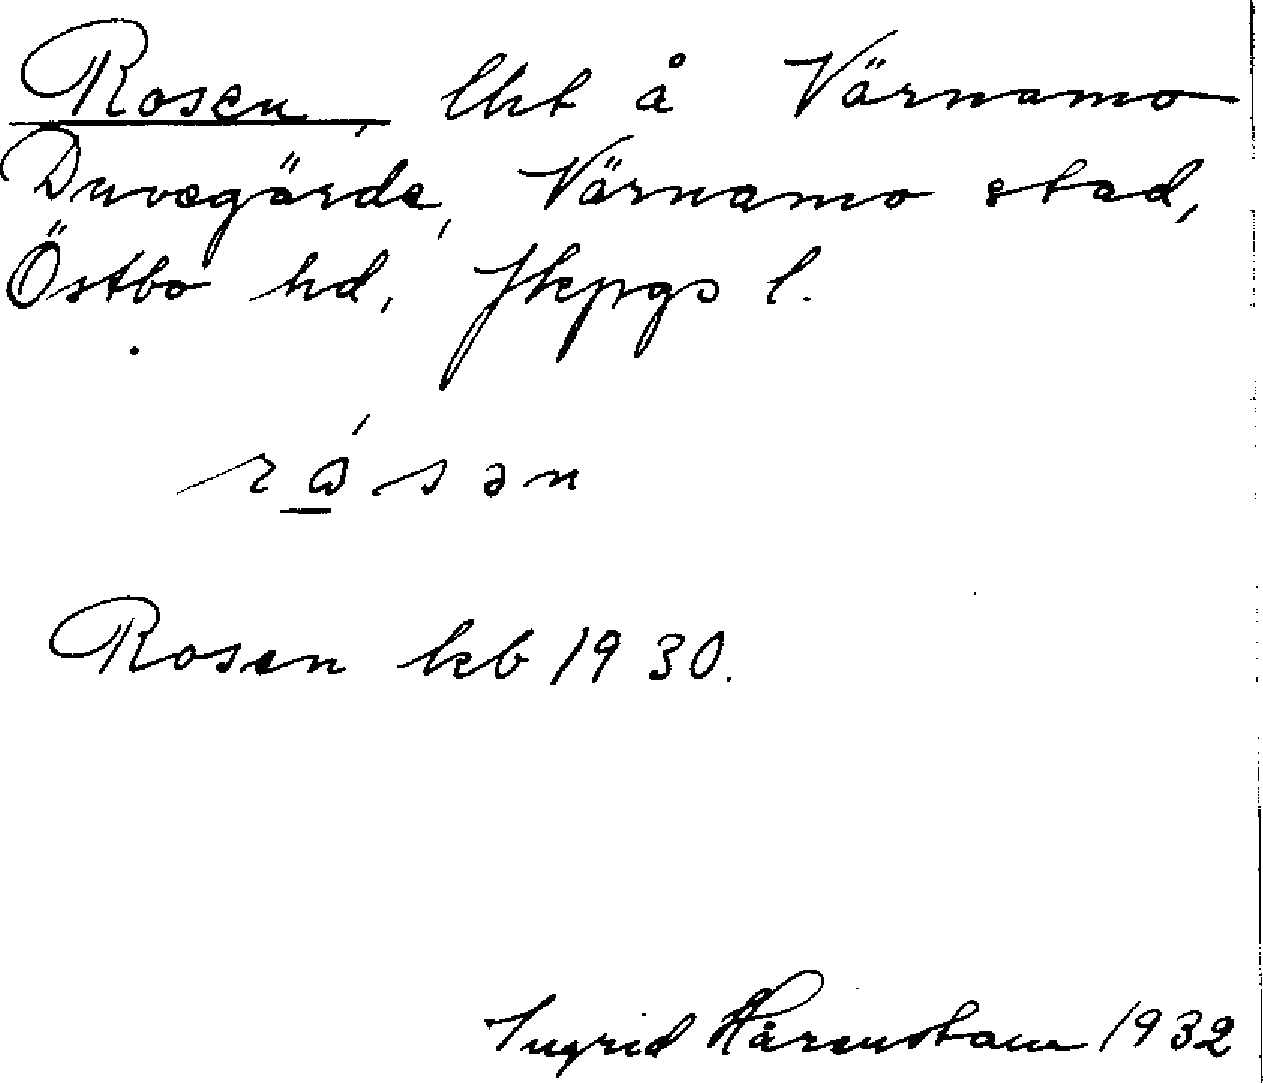 Rosen, lht å Värnamo
Duvegärde, Värnamo stad,
Östbo hd, Jkpgs l.
Rosen kb 1930.
Ingrid Härenstam 1932